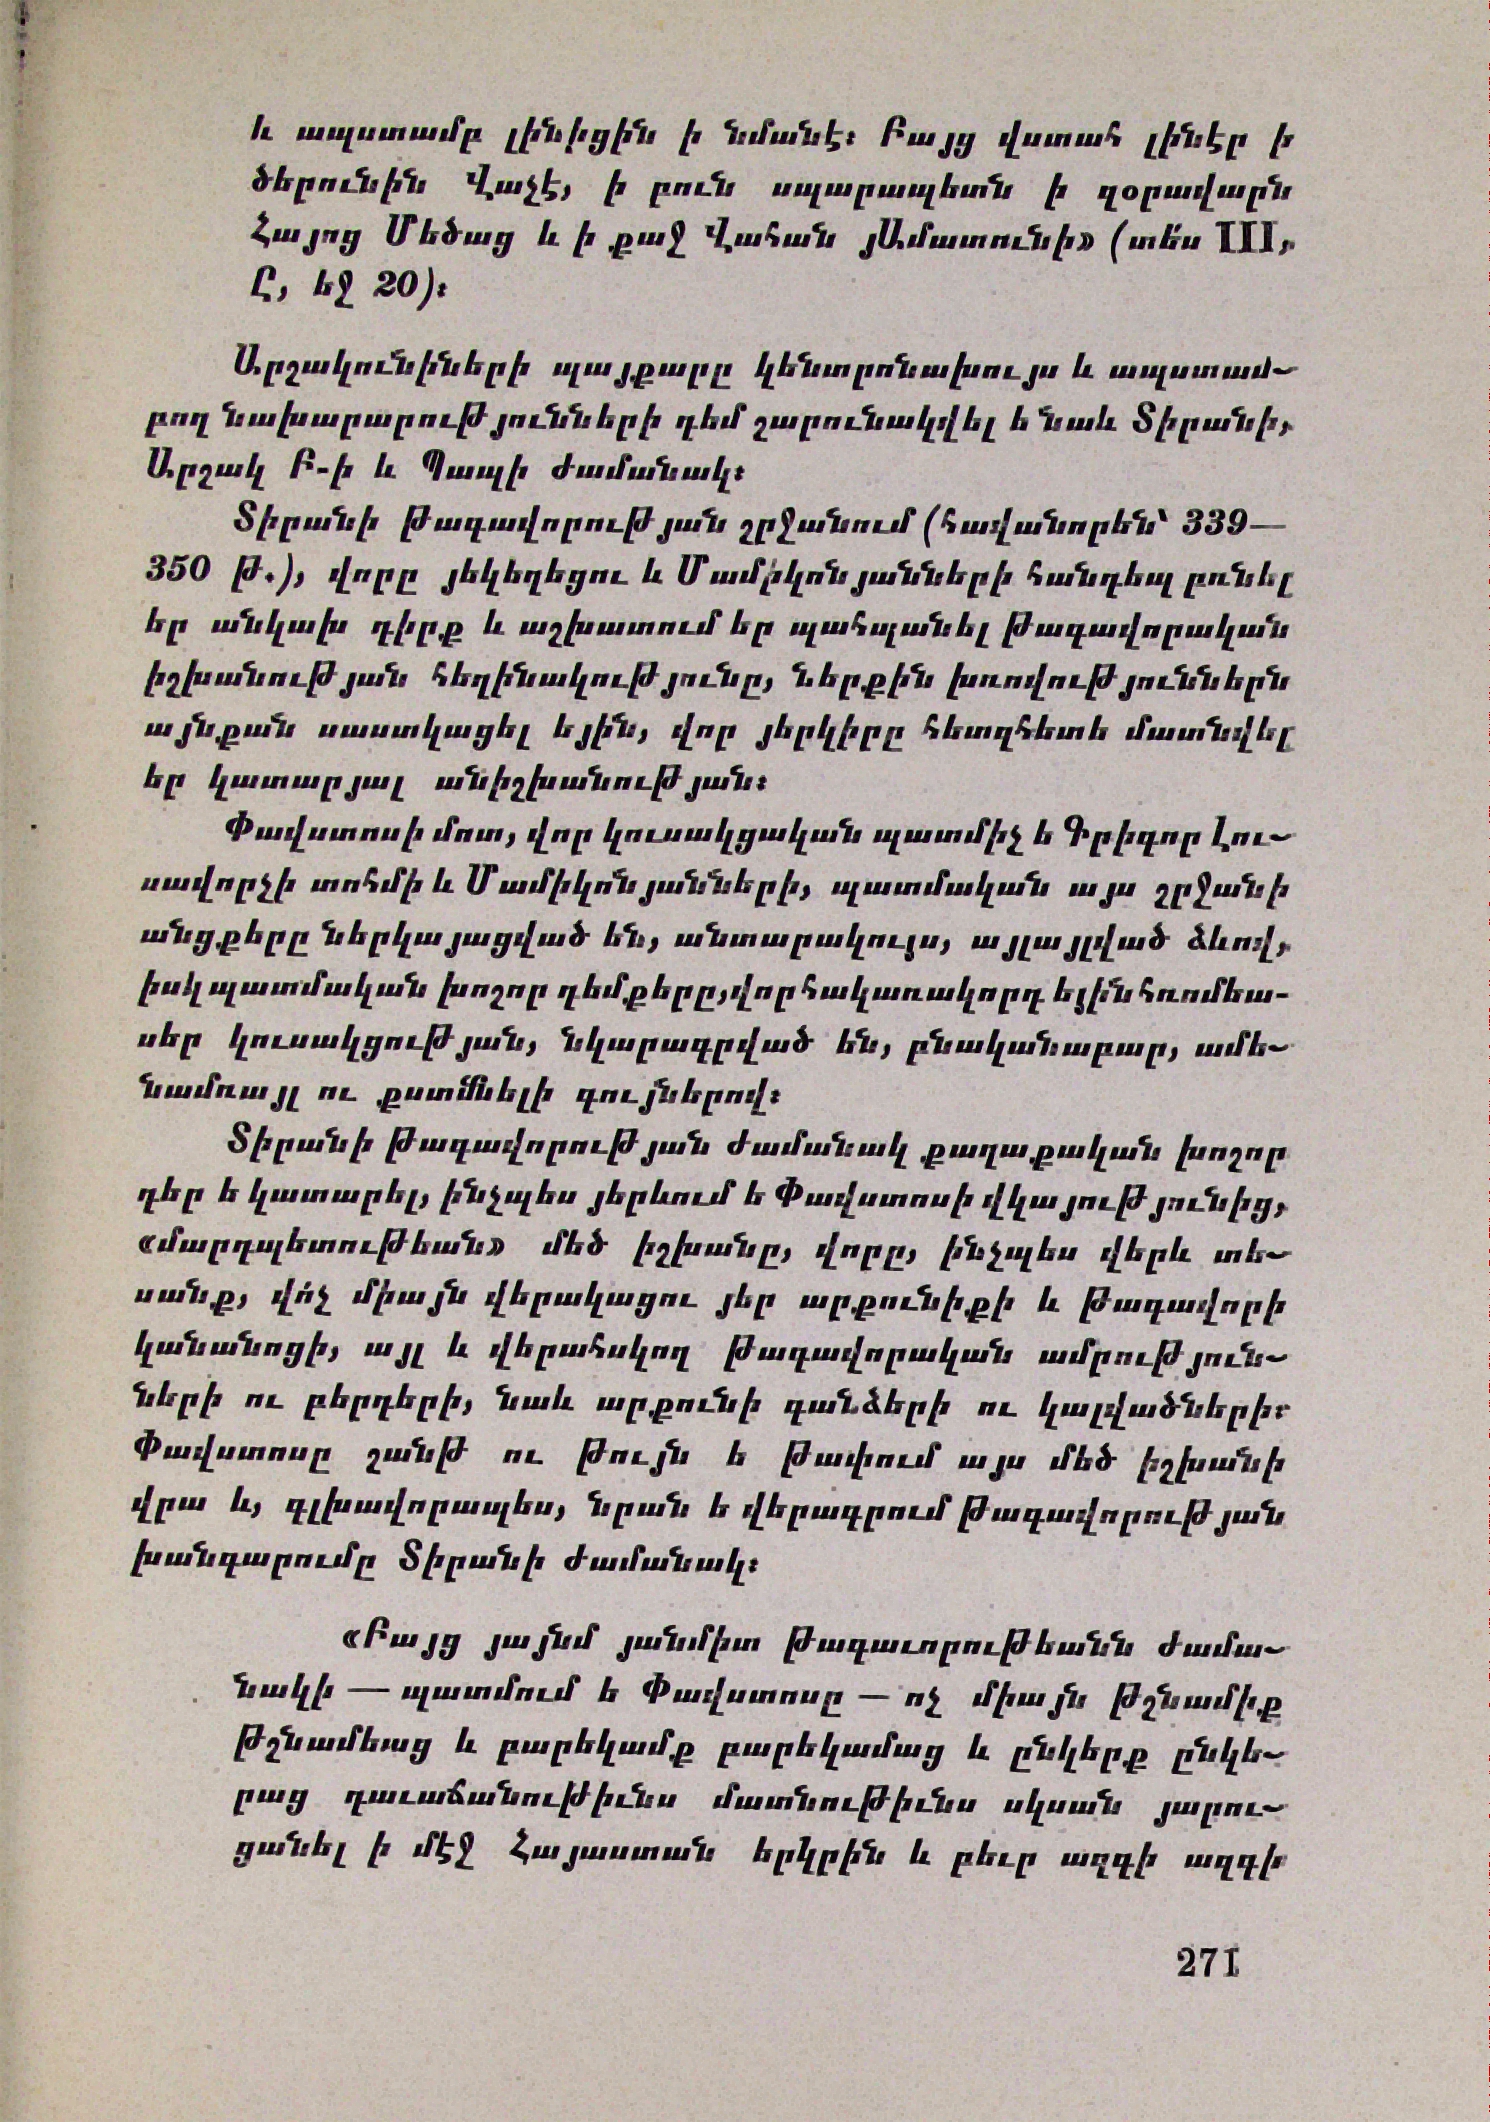 և ապստամբ լինիցին ի նմանէ։ Բայց վստահ լինէր ի
ծերունին Վաչէ, ի բուն սպարապետն ի զօրավարն
Հայոց Մեծաց և ի քաջ Վահան յԱմատունի» (տե՛ս III,
Ը, եջ 20)։
Արշակունիների պայքարը կենտրոնախույս և ապստամ-
բող նախարարությունների դեմ շարունակվել ե նաև Տիրանի,
Արշակ Բ-ի և Պապի ժամանակ։
Տիրանի թագավորության շրջանում (հավանորեն՝ 339—
350 թ.), վորը յեկեղեցու և Մամիկոնյանների հանդեպ բռնել
եր անկախ դիրք և աշխատում եր պահպանել թագավորական
իշխանության հեղինակությունը, ներքին խռովություններն
այնքան սաստկացել եյին, վոր յերկիրը հետզհետե մատնվել
եր կատարյալ անիշխանության։
Փավստոսի մոտ, վոր կուսակցական պատմիչ ե Գրիգոր Լու-
սավորչի տոհմի և Մամիկոնյանների, պատմական այս շրջանի
անցքերը ներկայացված են, անտարակույս, այլայլված ձևով,
իսկ պատմական խոշոր դեմքերը, վոր հակառակորդ եյին հռոմեա-
սեր կուսակցության, նկարագրված են, բնականաբար, ամե-
նամռայլ ու քստմնելի գույներով։
Տիրանի թագավորության ժամանակ քաղաքական խոշոր
դեր ե կատարել, ինչպես յերևում ե Փավստոսի վկայությունից,
«մարդպետութեան» մեծ իշխանը, վորը, ինչպես վերև տե-
սանք, վո՛չ միայն վերակացու յեր արքունիքի և թագավորի
կանանոցի, այլ և վերահսկող թագավորական ամրություն-
ների ու բերդերի, նաև արքունի գանձերի ու կալվածների։
Փավստոսը շանթ ու թույն ե թափում այս մեծ իշխանի
վրա և, գլխավորապես, նրան ե վերագրում թագավորության
խանգարումը Տիրանի ժամանակ։
«Բայց յայնմ յանմիտ թագաւորութեանն ժամա-
նակի — պատմում ե Փավստոսը — ոչ միայն թշնամիք
թշնամեաց և բարեկամք բարեկամաց և ընկերք ընկե-
րաց դաւաճանութիւնս մատնութիւնս սկսան յարու-
ցանել ի մէջ Հայաստան երկրին և բեւր ազգի ազգի
271